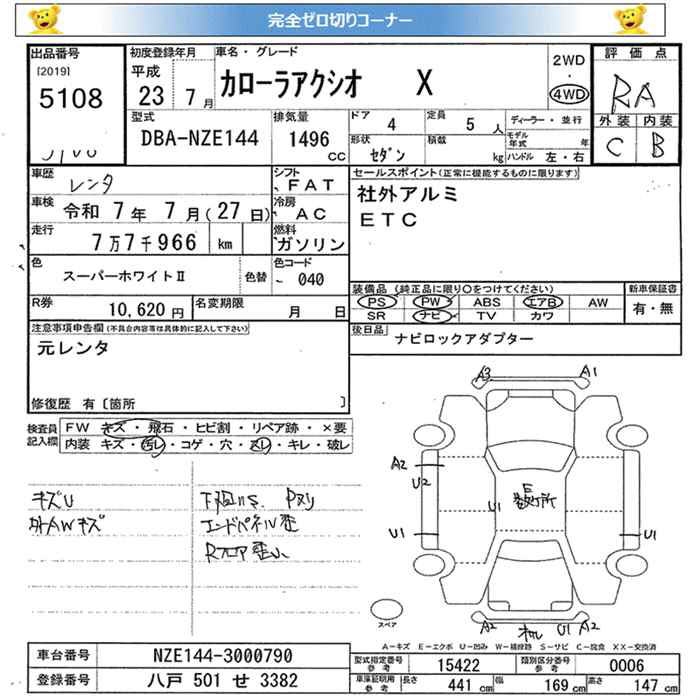 完全ゼロ切りコーナー
出品番号
[2019]
5108
初度登録年月
平成
23 7月
車名・グレード
カローラアクシオ X
2WD
・
4WD
評価点
RA
外装 内装
C B
型式
DBA-NZE144
排気量
1496
CC
ドア 4
定員 5人
形状 セダン
積載 kg
ディーラー・並行
モデル年式 年
ハンドル 左・右
車歴 レンタ
シフト FAT
車検 令和7年7月(27日)
冷房 AC
走行 7万7千966 km
燃料 ガソリン
色 スーパーホワイトⅡ
色替
色コード 040
R券 10,620円
名変期限 月 日
セールスポイント(正常に機能するものに限ります)
社外アルミ
ETC
装備品 (純正品に限り○をつけてください)
PS PW ABS エアB AW
SR ナビ TV カワ
新車保証書
有・無
後日品 ナビロックアダプター
注意事項申告欄(不具合内容等は具体的に記入して下さい)
元レンタ
修復歴 有〔箇所 〕
検査員記入欄
FW キズ・飛石・ヒビ割・リペア跡・×要
内装 キズ・汚レ・コゲ・穴・スレ・キレ・破レ
キズU
外AWキズ
エンドパネル歪
Rフロア歪
A3 A1
A2
U2
U1
U1
U1
A2 U1 A2
スペア
A-キズ E-エクボ U-凹ミ W-補修跡 S-サビ C-腐食 XX-交換済
車台番号 NZE144-3000790
登録番号 八戸 501 せ 3382
型式指定番号 参考 15422
類別区分番号 参考 0006
車庫証明用 参考 長さ 441 cm 幅 169 cm 高さ 147 cm